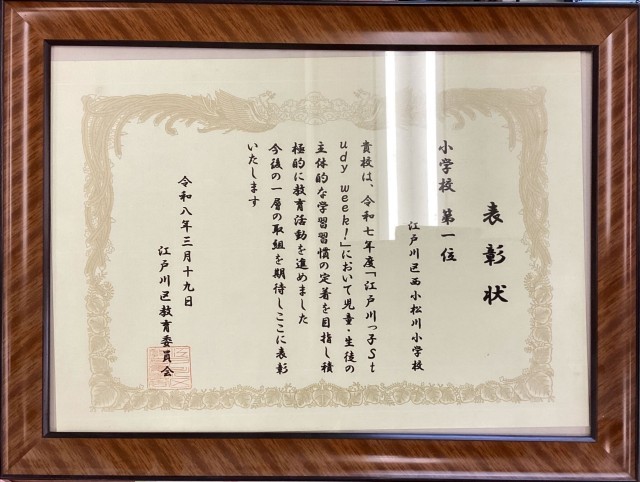 表彰状
小学校 第一位
江戸川区西小松川小学校
貴校は、令和七年度「江戸川っ子St
udy week!」において児童・生徒の
主体的な学習習慣の定着を目指し積
極的に教育活動を進めました
今後の一層の取組を期待しここに表彰
いたします
令和八年三月十九日
江戸川区教育委員会